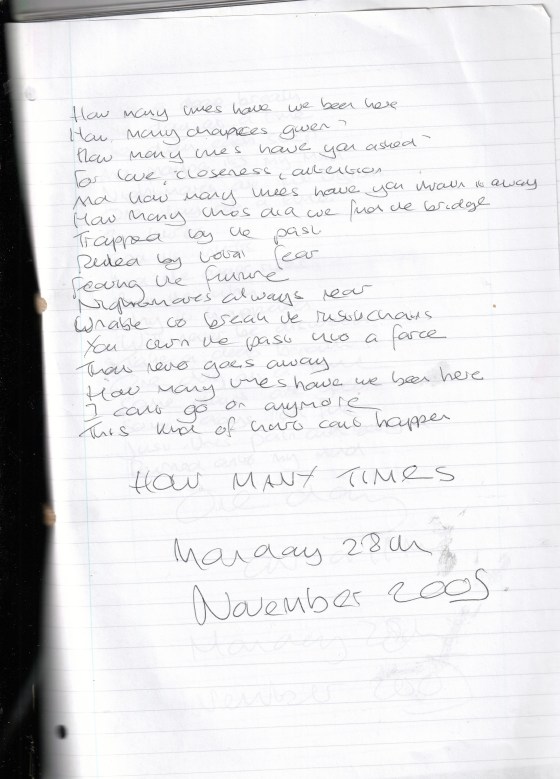 How many times have we been here
How many chances given?
How many times have you asked
For love, closeness, attention
And how many times have you thrown it away
How many times did we find the bridge
Trapped by the past
Ruled by total fear
Fearing the future
Nightmares always near
Unable to break the chains
You turn the past into a force
That never goes away
How many times have we been here
I can't go on anymore
This kind of can't happen
HOW MANY TIMES
Monday 28th
November 2005